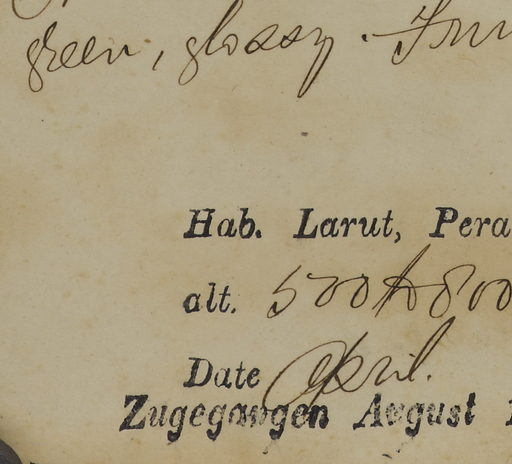 green, glossy.
Hab. Larut, Pera
alt. 500 to 800
Date April.
Zugegangen August